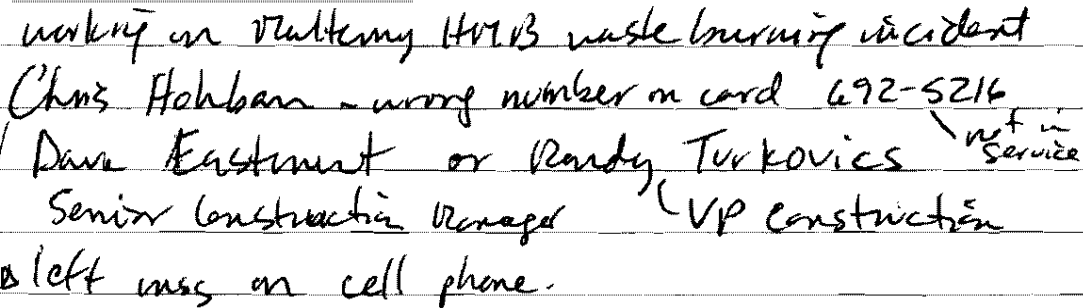 working on HMB waste burning incident
Chris Hohban - wrong number on card 692-5216
not in service
Dave Eastment or Randy Turkovics
Senior Construction Manager VP Construction
left msg on cell phone.